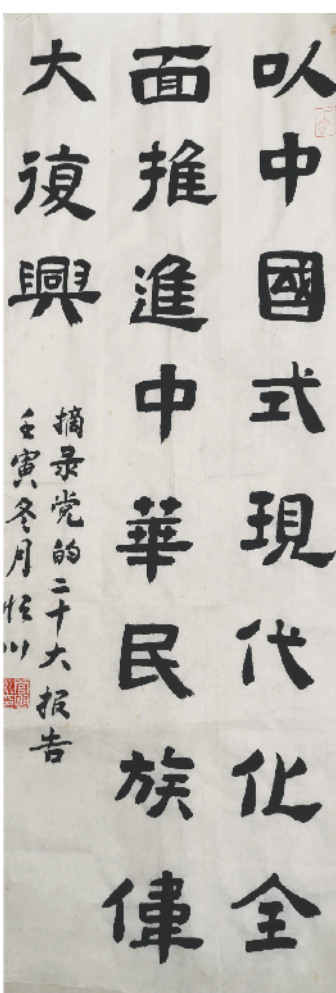 以中國式現代化全
面推進中華民族偉
大復興
摘录党的二十大报告
壬寅冬月恒川